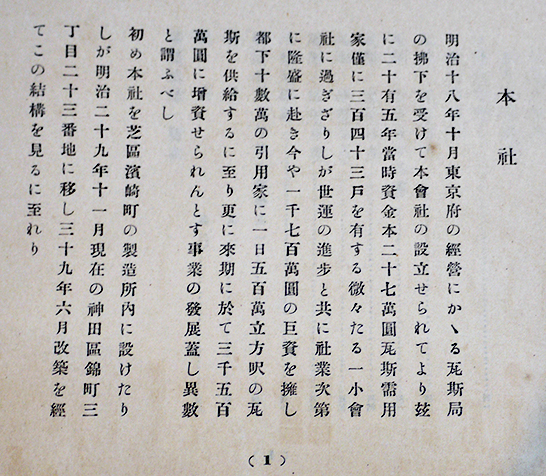 本社
明治十八年十月東京府の經營にかゝる瓦斯局
の拂下を受けて本會社の設立せられてより玆
に二十有五年當時資金本二十七萬圓瓦斯需用
家僅に三百四十三戸を有する微々たる一小會
社に過ぎざりしが世運の進步と共に社業次第
に隆盛に赴き今や一千七百萬圓の巨資を擁し
都下十數萬の引用家に一日五百萬立方呎の瓦
斯を供給するに至り更に來期に於て三千五百
萬圓に增資せられんとす事業の發展蓋し異數
と謂ふべし
初め本社を芝區濱崎町の製造所內に設けたり
しが明治二十九年十一月現在の神田區錦町三
丁目二十三番地に移し三十九年六月改築を經
てこの結構を見るに至れり
(1)